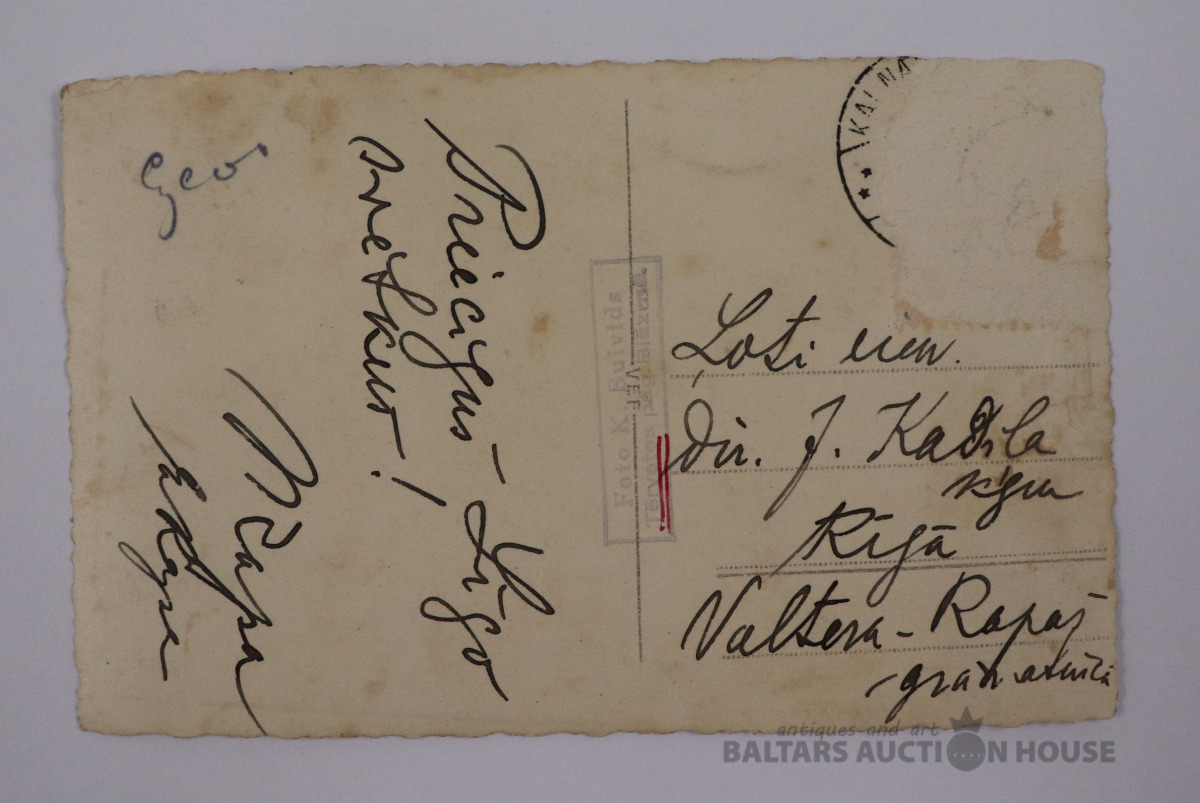 Priecīgus Līgo
svētkus!
KALNA
Foto K. Buivids
Tērvetes pag.
VEF
Ļoti cien.
Dir. J. Kadila
kgm
Rīgā
Valtera-Rapas
grāmatnīcā
antiques and art
BALTARS AUCTION HOUSE